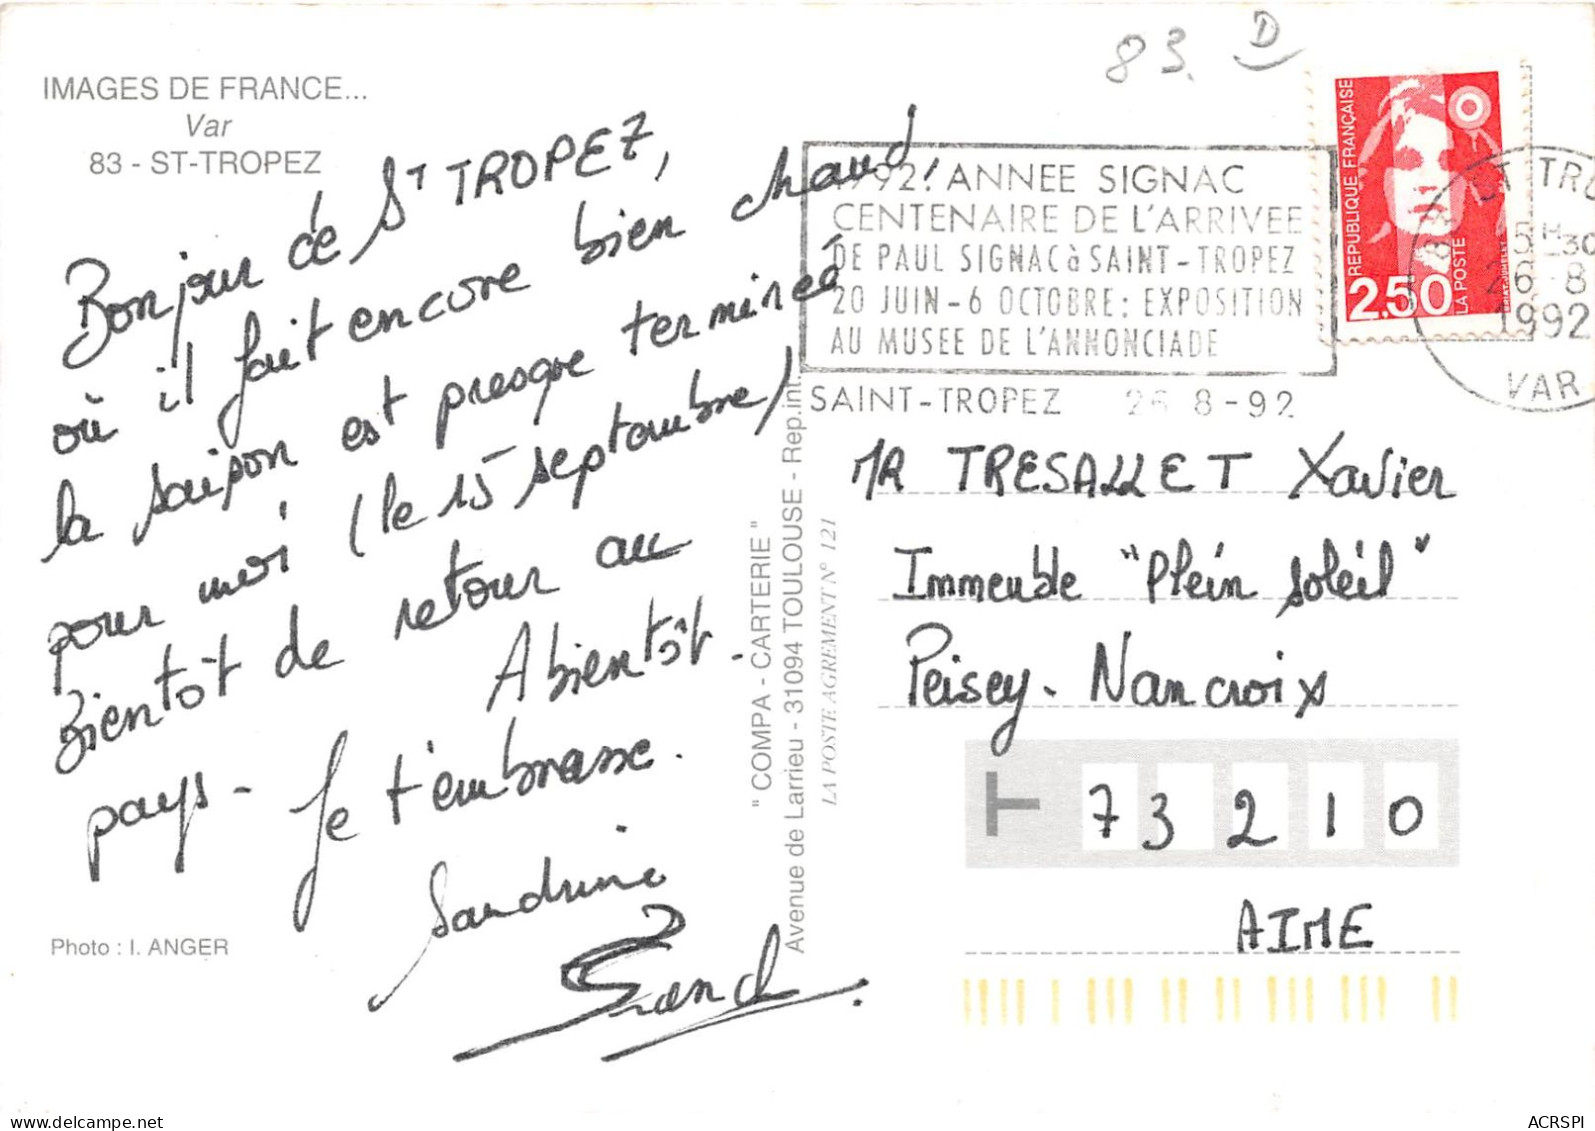 83. D
IMAGES DE FRANCE...
Var
83 - ST-TROPEZ
Bonjour de St TROPEZ,
où il fait encore bien chaud!
la saison est presque terminée
pour moi (le 15 septembre)
Bientôt de retour au
pays - A bientôt.
Je t'embrasse.
Sandrine
Sand
Photo : I. ANGER
" COMPA - CARTERIE "
Avenue de Larrieu - 31094 TOULOUSE - Rep.int.
LA POSTE AGREMENT N° 121
1992: ANNEE SIGNAC
CENTENAIRE DE L'ARRIVEE
DE PAUL SIGNAC à SAINT-TROPEZ
20 JUIN-6 OCTOBRE: EXPOSITION
AU MUSEE DE L'ANNONCIADE
SAINT-TROPEZ 26 8-92
REPUBLIQUE FRANÇAISE
2.50
LA POSTE
83 ST TRO
15H30
26-8
1992
VAR
MR TRESALLET Xavier
Immeuble "Plein Soleil"
Peisey-Nancroix
T 73210
AIME
ACRSPI